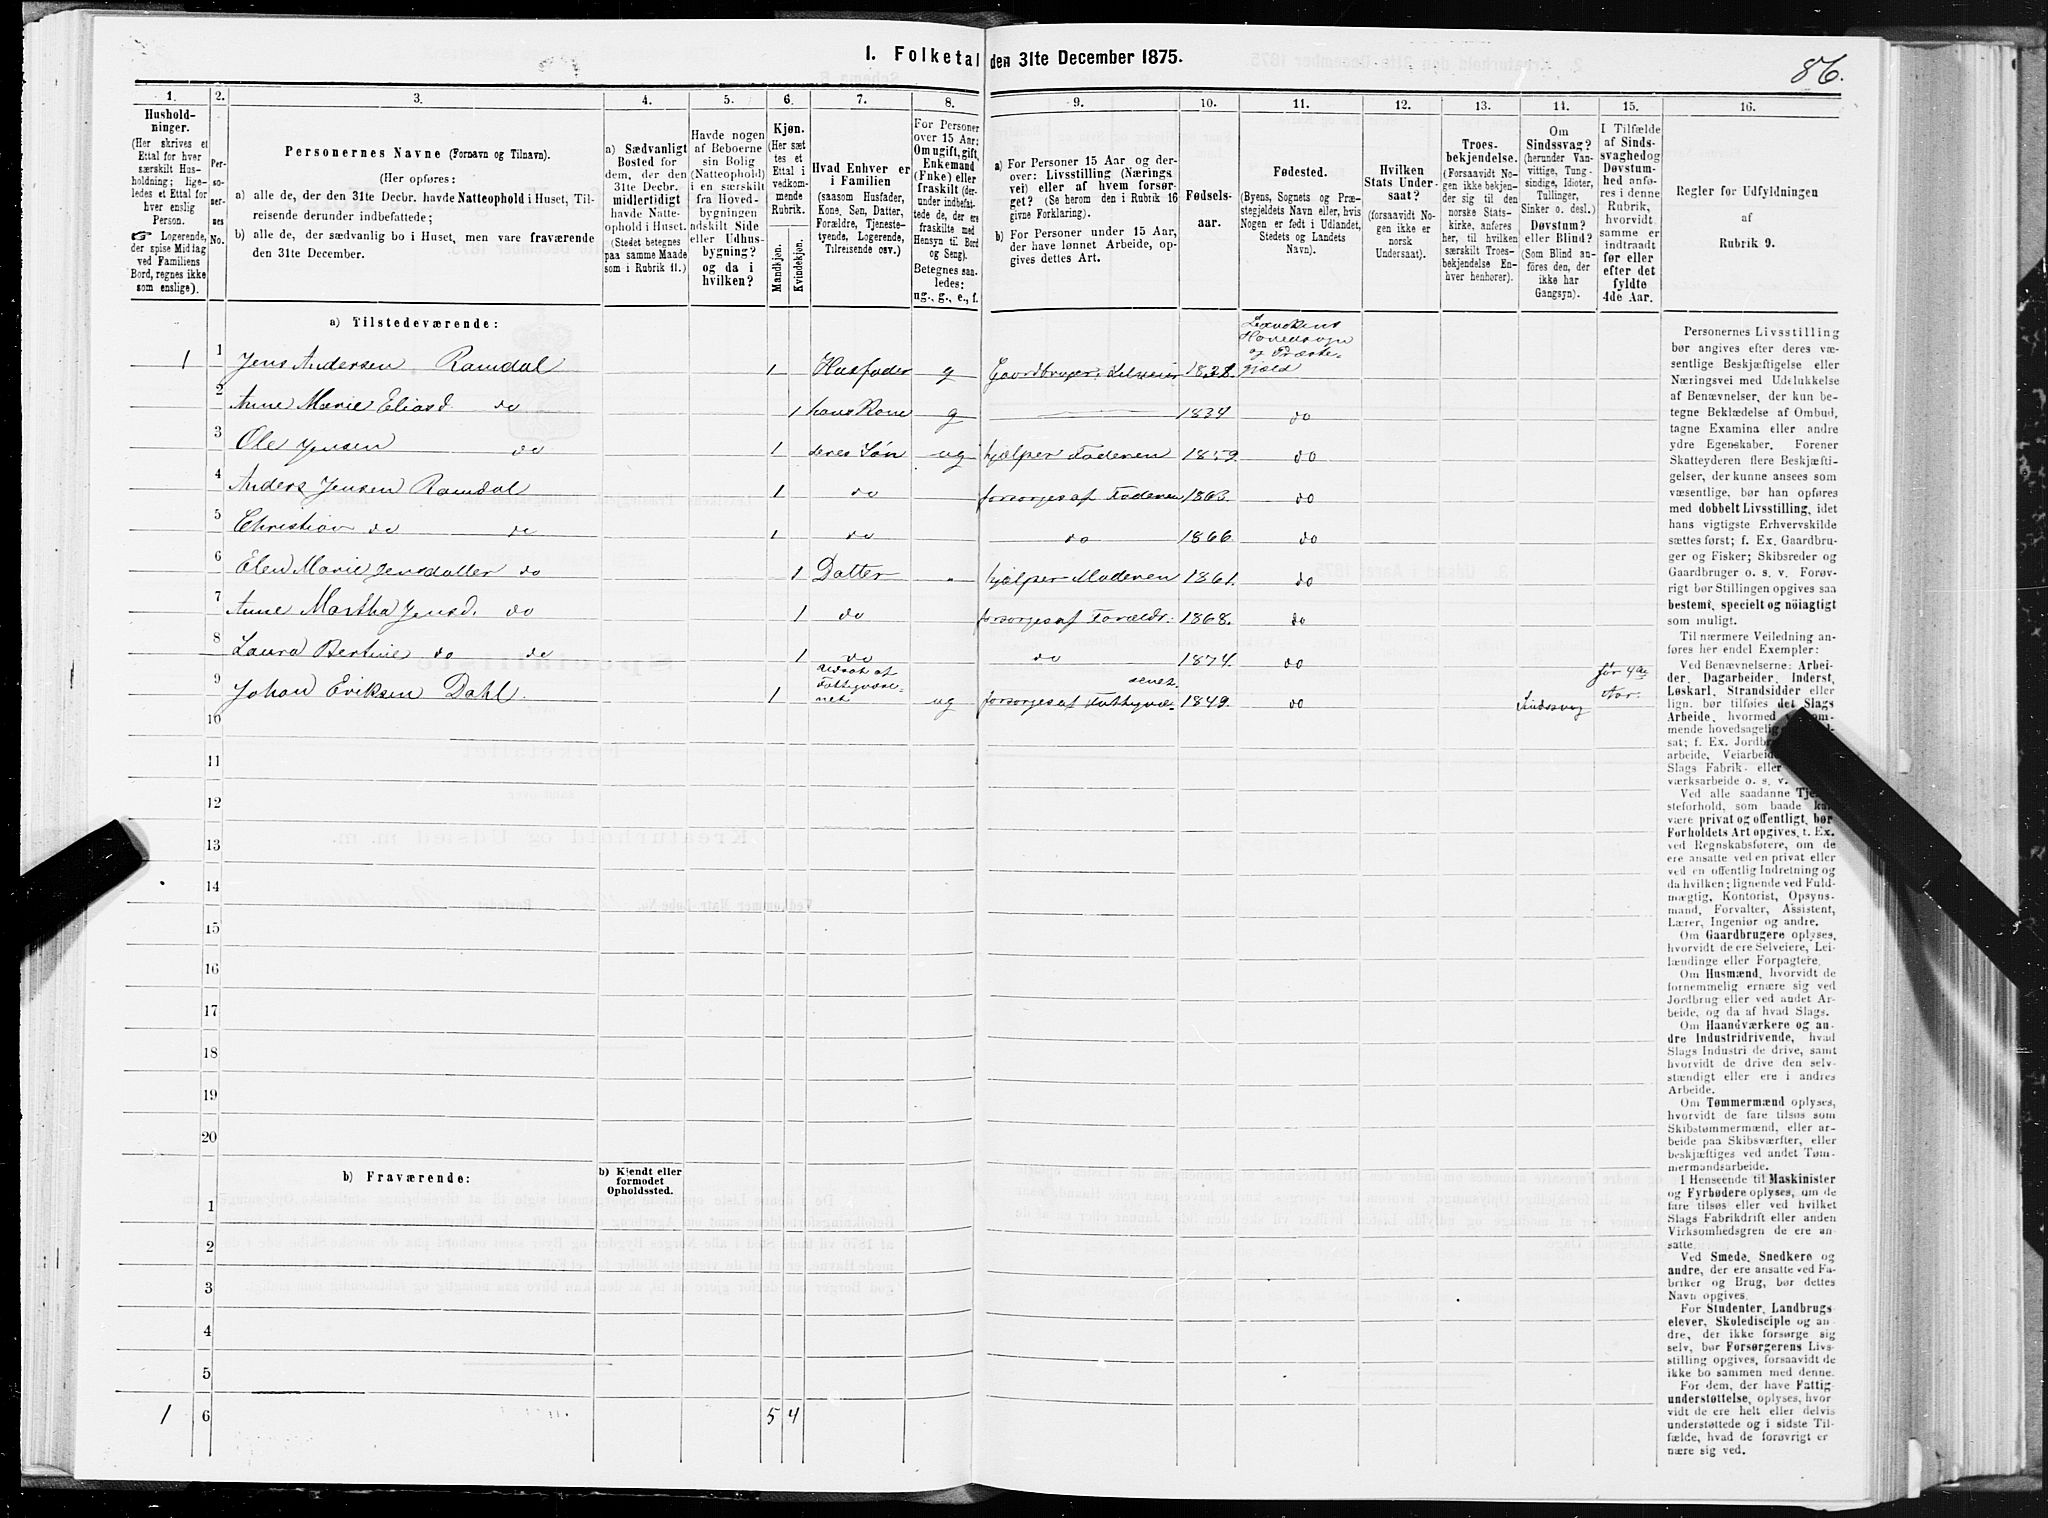 1. Folketal den 31te December 1875.
86.
1.
2.
3.
4.
5.
6.
7.
8.
9.
10.
11.
12.
13.
14.
15.
16.
Hushold-
ninger.
(Her skrives et
Ettal for hver
særskilt Hus-
holdning; lige-
ledes et Ettal for
hver enslig
Person.
☞ Logerende,
der spise Middag
ved Familiens
Bord, regnes ikke
som enslige).
Per-
so-
ner-
nes
No.
Personernes Navne (Fornavn og Tilnavn).
(Her opføres:
a) alle de, der den 31te Decbr. havde Natteophold i Huset, Til-
reisende derunder indbefattede;
b) alle de, der sædvanlig bo i Huset, men vare fraværende
den 31te December.
a) Sædvanligt
Bosted for
dem, der den
31te Decbr.
midlertidigt
havde Natte-
ophold i Huset.
(Stedet betegnes
paa samme Maade
som i Rubrik 11.)
Havde nogen
af Beboerne
sin Bolig
(Natteophold)
i en særskilt
fra Hoved-
bygningen
adskilt Side
eller Udhus-
bygning?
og da i
hvilken?
Kjøn.
(Her sæt
tes et
Ettal i
vedkom-
mende
Rubrik.
Mandkjøn.
Kvindekjøn.
Hvad Enhver er
i Familien
(saasom Husfader,
Kone, Søn, Datter,
Forældre, Tjeneste-
tyende, Logerende,
Tilreisende osv.)
For Personer
over 15 Aar:
Om ugift, gift,
Enkemand
(Enke) eller
fraskilt (der-
under indbefat-
tede de, der ere
fraskilte med
Hensyn til Bord
og Seng).
Betegnes saa-
ledes:
ug., g., e., f.
a) For Personer 15 Aar og der-
over: Livsstilling (Nærings
vei) eller af hvem forsør-
get? (Se herom den i Rubrik 16
givne Forklaring).
b) For Personer under 15 Aar,
der have lønnet Arbeide, op-
gives dettes Art.
Fødsels-
aar.
Fødested.
(Byens, Sognets og Præ-
stegjeldets Navn eller, hvis
Nogen er født i Udlandet,
Stedets og Landets
Navn).
Hvilken
Stats Under-
saat?
(forsaavidt No-
gen ikke er
norsk
Undersaat).
Troes-
bekjendelse.
(Forsaavidt No-
gen ikke bekjen-
der sig til den
norske Stats-
kirke, anføres
her, til hvilken
særskilt Troes-
bekjendelse En-
hver henhører).
Om
Sindssvag?
(herunder Van-
vittige, Tung-
sindige, Idioter,
Tullinger,
Sinker o. desl.)
Døvstum?
eller Blind?
(Som Blind an-
føres den, der
ikke har
Gangsyn).
I Tilfælde
af Sinds-
svaghed og
Døvstum-
hed anfø-
res i denne
Rubrik,
hvorvidt
samme er
indtraadt
før eller
efter det
fyldte
4de Aar.
Regler for Udfyldningen
af
Rubrik 9.
a) Tilstedeværende:
1 1 Jens Andersen Ramdal 1 Husfader g Gaardbruger, Selveier 1828. Hovedsogn og Præste-
gjæld
2 Anne Marie Eliasd. do 1 hans Kone g 1834 do
3 Ole Jensen do 1 deres Søn ug hjælper Faderen 1859. do
4 Anders Jensen Ramdal 1 do forsørges af Faderen 1863. do
5 Christian do do 1 do do 1866. do
6 Elen Marie Jensdatter do 1 Datter hjælper Moderen 1861. do
7 Anne Martha Jensd. do 1 do forsørges af Forældr. 1868. do
8 Laura Bertine do do 1 do do 1874. do
9 Johan Eriksen Dahl. 1 Udsat af Fattigvæse-
net ug forsørges af Fattigvæ-
senet. 1849. do Sindssvag før 4de Aar.
10
11
12
13
14
15
16
17
18
19
20
b) Fraværende:
b) Kjendt eller
formodet
Opholdssted.
1
2
3
4
5
1 6 5 4
Personernes Livsstilling
bør angives efter deres væ-
sentlige Beskjæftigelse eller
Næringsvei med Udelukkelse
af Benævnelser, der kun be-
tegne Beklædelse af Ombud,
tagne Examina eller andre
ydre Egenskaber. Forener
Skatteyderen flere Beskjæfti-
gelser, der kunne ansees som
væsentlige, bør han opføres
med dobbelt Livsstilling, idet
hans vigtigste Erhvervskilde
sættes først; f. Ex. Gaardbru-
ger og Fisker; Skibsreder og
Gaardbruger o. s. v. Forøv-
rigt bør Stillingen opgives saa
bestemt, specielt og nöiagtigt
som muligt.
Til nærmere Veiledning an-
føres her endel Exempler:
Ved Benævnelserne: Arbei-
der, Dagarbeider, Inderst,
Løskarl, Strandsidder eller
lign. bør tilføies det Slags
Arbeide, hvormed
mende hovedsagelig
sat; f. Ex. Jordbr
arbeide, Veiarbeid
Slags Fabrik- eller
værksarbeide o. s. v.
Ved alle saadanne Tje
steforhold, som baade
være privat og offentligt, bør
Forholdets Art opgives, t. Ex.
ved Regnskabsførere, om de
ere ansatte ved en privat eller
ved en offentlig Indretning og
da hvilken; lignende ved Fuld-
mægtig, Kontorist, Opsyns-
mand, Forvalter, Assistent,
Lærer, Ingeniør og andre.
Om Gaardbrugere oplyses,
hvorvidt de ere Selveiere, Lei-
lændinge eller Forpagtere.
Om Husmænd, hvorvidt de
fornemmelig ernære sig ved
Jordbrug eller ved andet Ar-
beide, og da af hvad Slags.
Om Haandværkere og an-
dre Industridrivende, hvad
Slags Industri de drive, samt
hvorvidt de drive den selv-
stændigt eller ere i andres
Arbeide.
Om Tømmermænd oplyses,
hvorvidt de fare tilsøs som
Skibstømmermænd, eller ar-
beide paa Skibsværfter, eller
beskjæftiges ved andet Tøm-
mermandsarbeide.
I Henseende til Maskinister
og Fyrbødere oplyses, om de
fare tilsøs eller ved hvilket
Slags Fabrikdrift eller anden
Virksomhedsgren de ere an-
satte.
Ved Smede, Snedkere og
andre, der ere ansatte ved Fa-
briker og Brug, bør dettes
Navn opgives.
For Studenter, Landbrugs-
elever, Skoledisciple og an-
dre, der ikke forsørge sig
selv, bør Forsørgerens Livs-
stilling opgives, forsaavidt de
ikke bo sammen med denne.
For dem, der have Fattig-
understøttelse, oplyses, hvor-
vidt de ere helt eller delvis
understøttede og i sidste Til-
fælde, hvad de forøvrigt er-
nære sig ved.